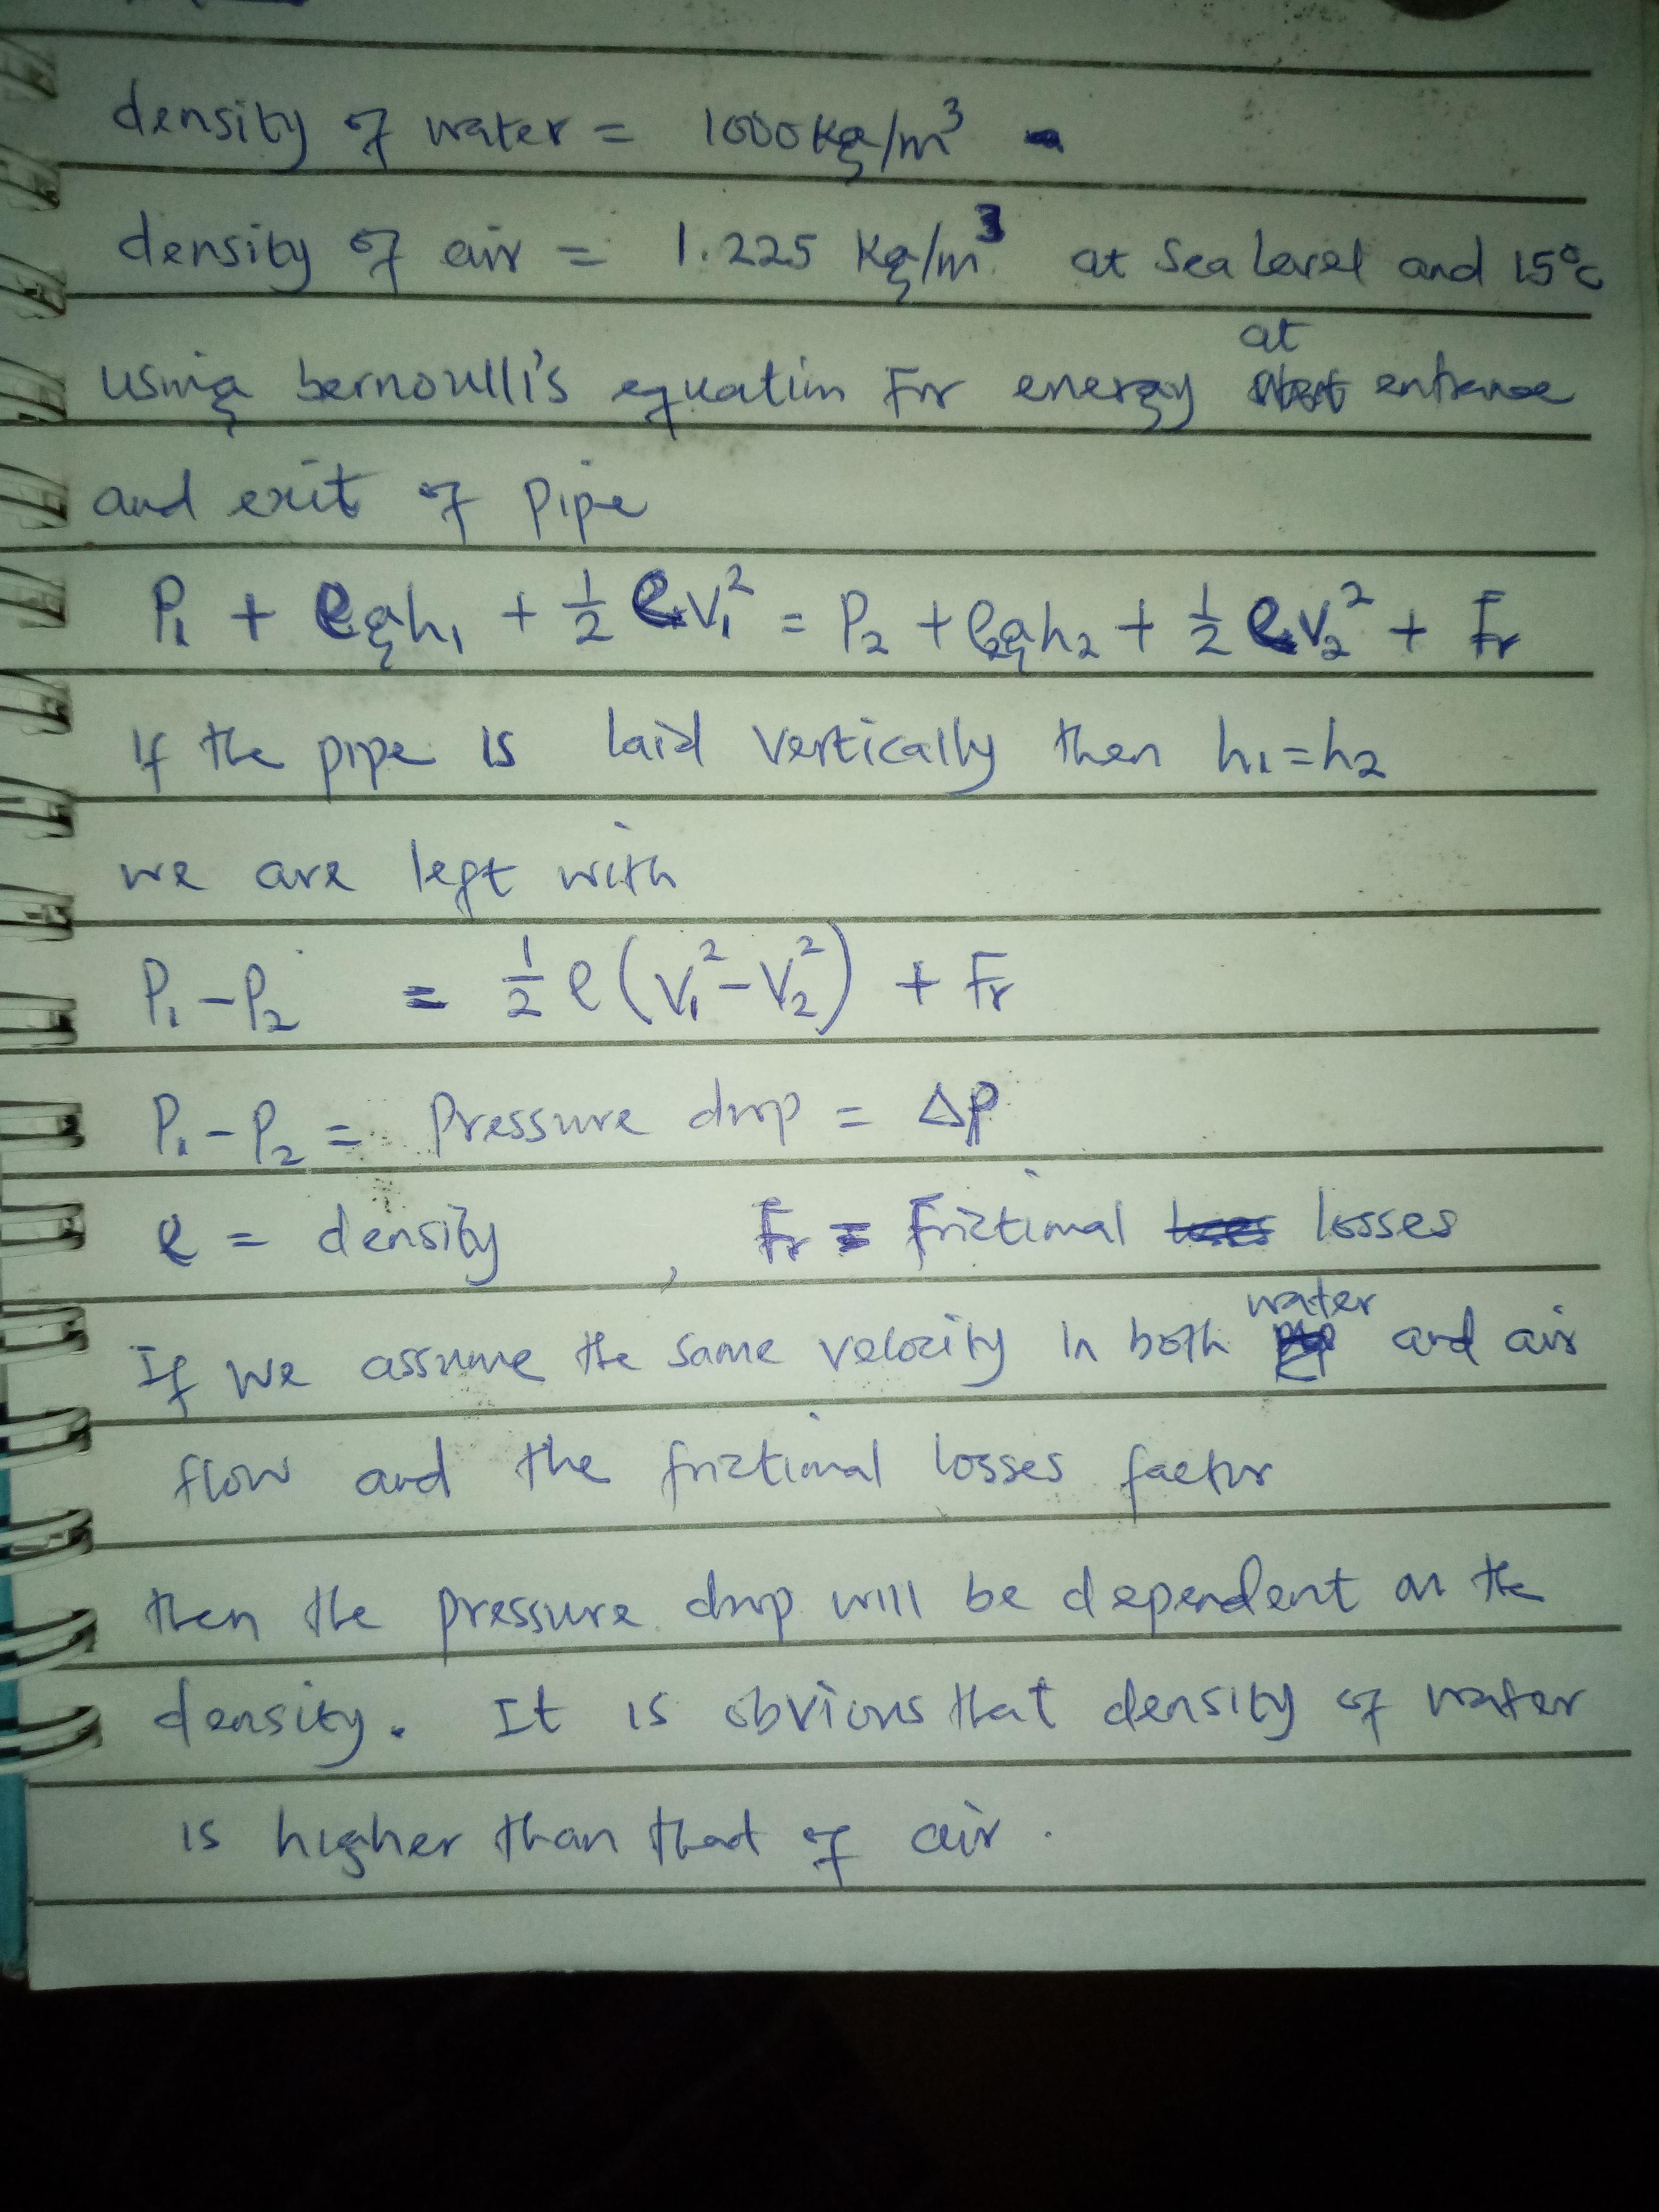 density of water = 1000kg/m³
density of air = 1.225 kg/m³ at sea level and 15°c
using bernoulli's equation For energy at entrance
and exit of pipe
P₁ + ρgh₁ + ½ ρv₁² = P₂ + ρgh₂ + ½ ρv₂² + Fr
If the pipe is laid vertically then h₁=h₂
we are left with
P₁-P₂ = ½ρ(v₁²-v₂²) + Fr
P₁-P₂ = Pressure drop = ΔP
ρ = density , Fr = Frictional losses
If we assume the same velocity in both water and air
flow and the frictional losses factor
then the pressure drop will be dependent on the
density. It is obvious that density of water
is higher than that of air.